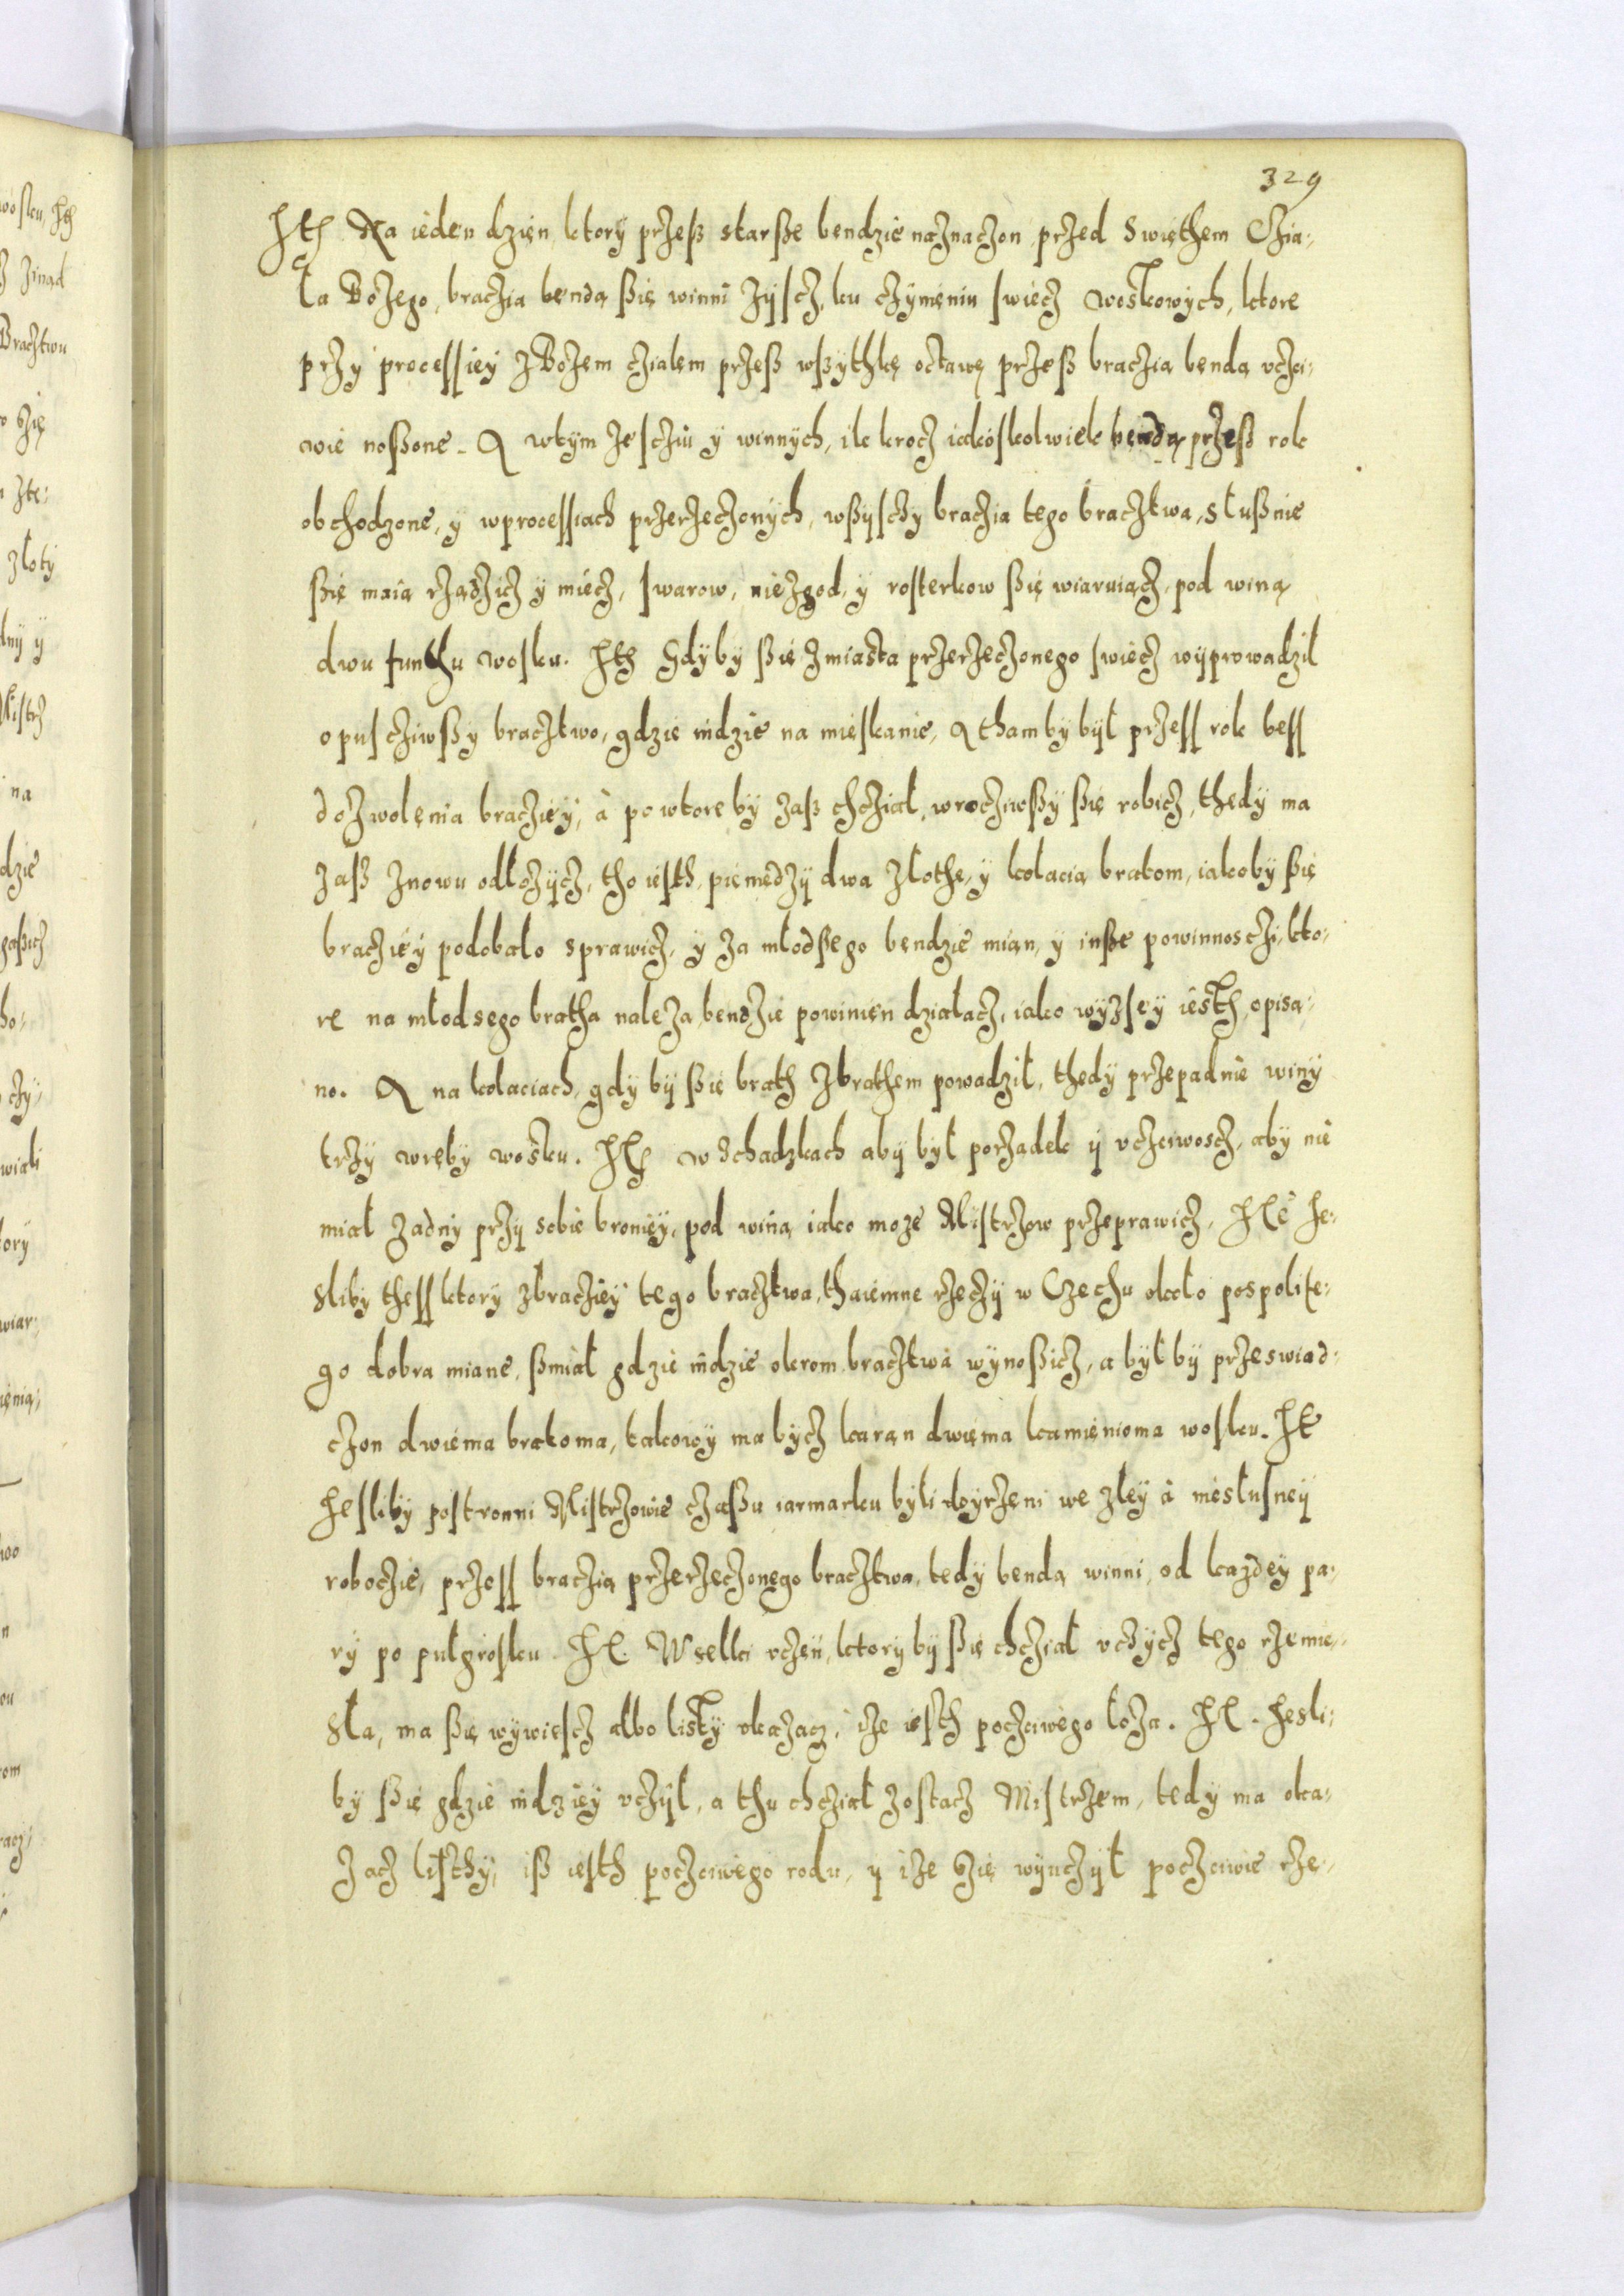 329
Ith Na ieden dzien ktory przeß starsße bendzie naznaczon przed swiethem Czia-
ła Bozego, braczia benda ßię winni zyscz ku czynieniu swiecz woskowych, ktore
przy processiey z Bozem czialem przeß wßythkę octawę przeß braczia benda vczci-
wie noßone. A wtym zesczciu y winnych, ile krocz iakoskolwiek benda przeß rok
obchodzone, y wprocessiach przerzeczonych, wßysczy braczia tego braczstwa, słußnie
ßię maia rządzicz y miecz, swarow, niezgod, y rosterkow ßię wiaruiącz, pod winą
dwu funthu wosku. Ith Gdyby ßię z miasta przerzeczonego swiecz wyprowadził
opusciwßy bracztwo, gdzie indzie na mieskanie, A thamby był przess rok bess
dozwolenia bracziey, a powtore by zaß chcział, wrocziwßy ßię robicz, thedy ma
zaß znowu odłozycz, tho iesth, pieniedzy dwa złothe, y kolacią bratom, iakoby ßię
bracziey podobało sprawicz, y za młodsego bendzie mian, y insße powinnosczi, kto-
re na młodsego bratha naleza, bendzie powinien działacz, iako wyzsey iesth opisa-
no. A na kolaciach, gdy by ßię brath z brathem powadził, thedy przepadnie winy
trzy wręby wosku. Ith w Schadzkach aby był porzadek y vczciwoscz, aby nie
miał zadny przy sobie broniey, pod winą iako moze Mistrzow przeprawicz. Ith Ie-
sliby thess ktory z bracziey tego bracztwa, thaiemne rzeczy w Czechu około pospolite-
go dobra miane, ßmiał gdzie indzie okrom bracztwa wynoßicz, a byłby przeswiad-
czon dwiema bratoma, takowy ma bycz karan dwiema kamienioma wosku. It
Iesliby postronni Mistrzowie czaßu iarmarku byli doyrzeni we zley a niesłusney
roboczie, przess braczią przerzeczonego bracztwa, tedy benda winni, od kazdey pa-
ry po pułgrosku. It. Wselki vczen, ktory by ßię chcział vczycz tego rzemie-
sła, ma ßię wywiescz albo listy vkazacz, ize iesth poczciwego łoza. It. Iesli-
by ßię gdzie indziey vczył, a thu chcział zostacz Mistrzem, tedy ma oka-
zacz listhy, iß iesth poczciwego rodu, y ize ßię wyuczył poczciwie rze-